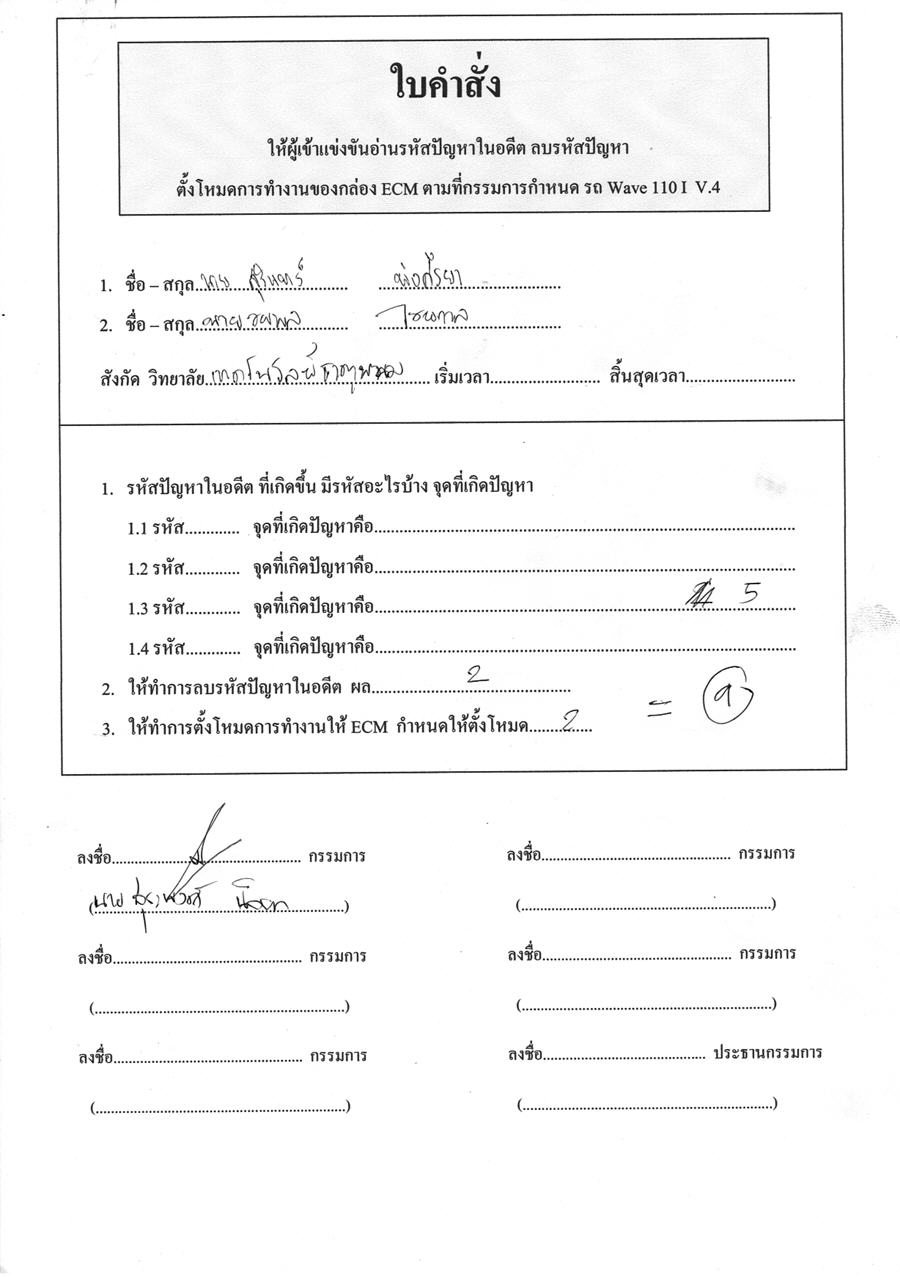 ใบคำสั่ง
ให้ผู้เข้าแข่งขันอ่านรหัสปัญหาในอดีต ลบรหัสปัญหา
ตั้งโหมดการทำงานของกล่อง ECM ตามที่กรรมการกำหนด รถ Wave 110 I V.4
1. ชื่อ – สกุล..นาย สุรินทร์....................
2. ชื่อ – สกุล..นาย ชยพล.................... ไชยกาล....................
สังกัด วิทยาลัย..เทคโนโลยีธาตุพนม.......เริ่มเวลา............................ สิ้นสุดเวลา............................
1. รหัสปัญหาในอดีต ที่เกิดขึ้น มีรหัสอะไรบ้าง จุดที่เกิดปัญหา
1.1 รหัส............. จุดที่เกิดปัญหาคือ....................................................................
1.2 รหัส............. จุดที่เกิดปัญหาคือ....................................................................
1.3 รหัส............. จุดที่เกิดปัญหาคือ.................................................................... 5
1.4 รหัส............. จุดที่เกิดปัญหาคือ....................................................................
2. ให้ทำการลบรหัสปัญหาในอดีต ผล....................2....................
3. ให้ทำการตั้งโหมดการทำงานให้ ECM กำหนดให้ตั้งโหมด........2...... = 9
ลงชื่อ............................................... กรรมการ ลงชื่อ............................................... กรรมการ
(นาย ....................) (................................................................)
ลงชื่อ............................................... กรรมการ ลงชื่อ............................................... กรรมการ
(................................................................) (................................................................)
ลงชื่อ............................................... กรรมการ ลงชื่อ......................................... ประธานกรรมการ
(................................................................) (................................................................)